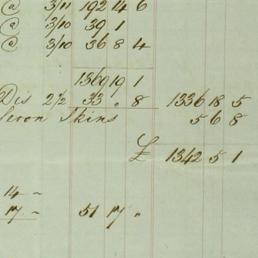 @ 3/11 192 4 6
@ 3/10 39 1
@ 3/10 36 8 4
1369 19 1
Dis 2½ 33 " 8 1336 18 5
Skins 5 6 8
£ 1342 5 1
14 ~
17 ~ 51 17 "